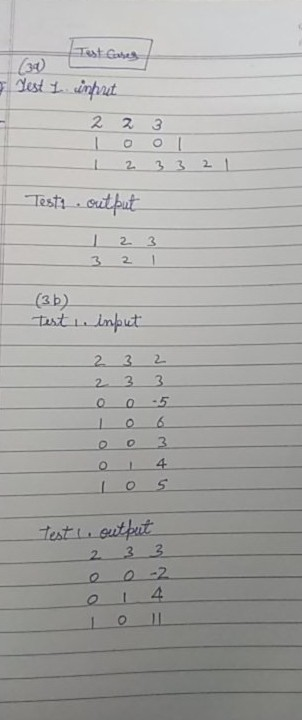 Test Cases
(3a)
Test 1. input
2 2 3
1 0 0 1
1 2 3 3 2 1
Test1. output
1 2 3
3 2 1
(3b)
Test 1. input
2 3 2
2 3 3
0 0 -5
1 0 6
0 0 3
0 1 4
1 0 5
Test 1. output
2 3 3
0 0 -2
0 1 4
1 0 11